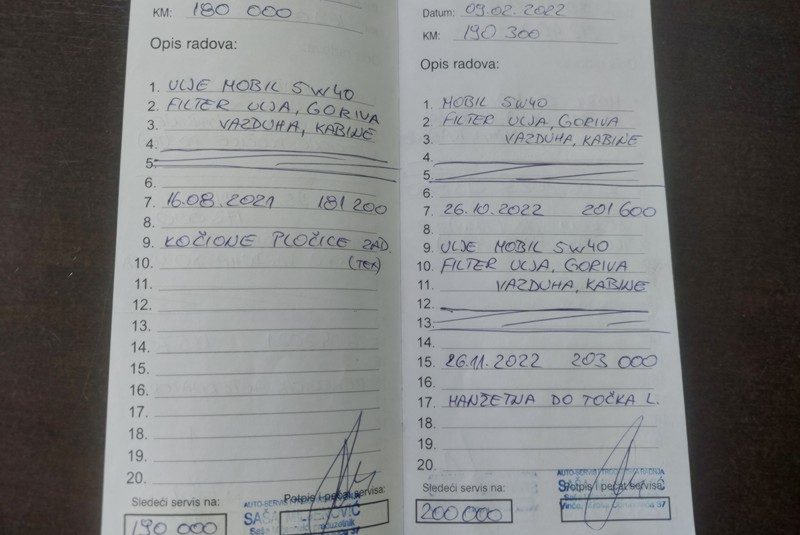 KM: 180 000
Opis radova:
1. ULJE MOBIL 5W40
2. FILTER ULJA, GORIVA
3. VAZDUHA, KABINE
4.
5.
6.
7. 16.08.2021 181 200
8.
9. KOČIONE PLOČICE ZAD.
10. (TEX)
11.
12.
13.
14.
15.
16.
17.
18.
19.
20.
Sledeći servis na:
Potpis i pečat servisa:
190 000
AUTO-SERVIS
SAŠA
Datum: 09.02.2022
KM: 190 300
Opis radova:
1. MOBIL 5W40
2. FILTER ULJA, GORIVA
3. VAZDUHA, KABINE
4.
5.
6.
7. 26.10.2022 201 600
8.
9. ULJE MOBIL 5W40
10. FILTER ULJA, GORIVA
11. VAZDUHA, KABINE
12.
13.
14.
15. 26.11.2022 203 000
16.
17. MANŽETNA DO TOČKA L.
18.
19.
20.
AUTO-SERVIS I TRGOVINSKA RADNJA
Sledeći servis na:
Potpis i pečat servisa:
200 000
Vinča,
37